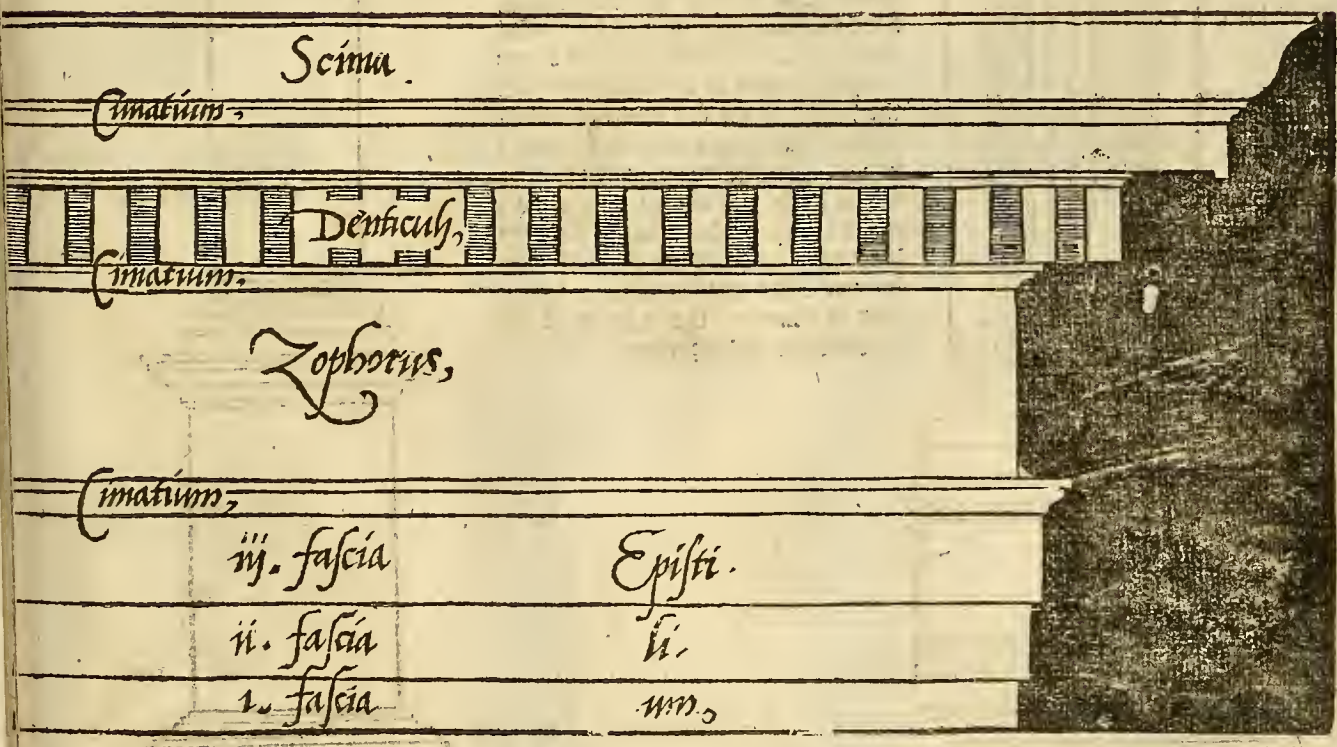 Scima
Cimatium,
Denticuli,
Cimatium,
Zophorus,
Cimatium,
iij. faſcia Epiſti.
ii. faſcia li,
i. faſcia um,